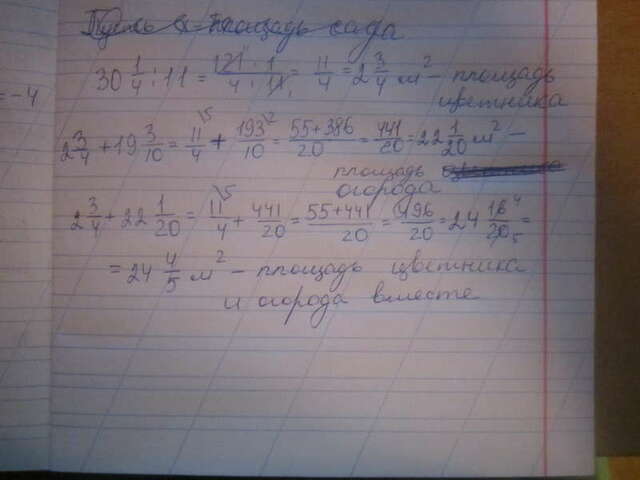 = -4
Пусть x - площадь сада
30 1/4 : 11 = 121 · 1 / 4 · 11 = 11/4 = 2 3/4 м² - площадь
цветника
2 3/4 + 19 3/10 = 11/4 + 193/10 = 55+386 / 20 = 441/20 = 22 1/20 м² -
площадь
огорода
2 3/4 + 22 1/20 = 11/4 + 441/20 = 55+441 / 20 = 496/20 = 24 16/20 =
= 24 4/5 м² - площадь цветника
и огорода вместе